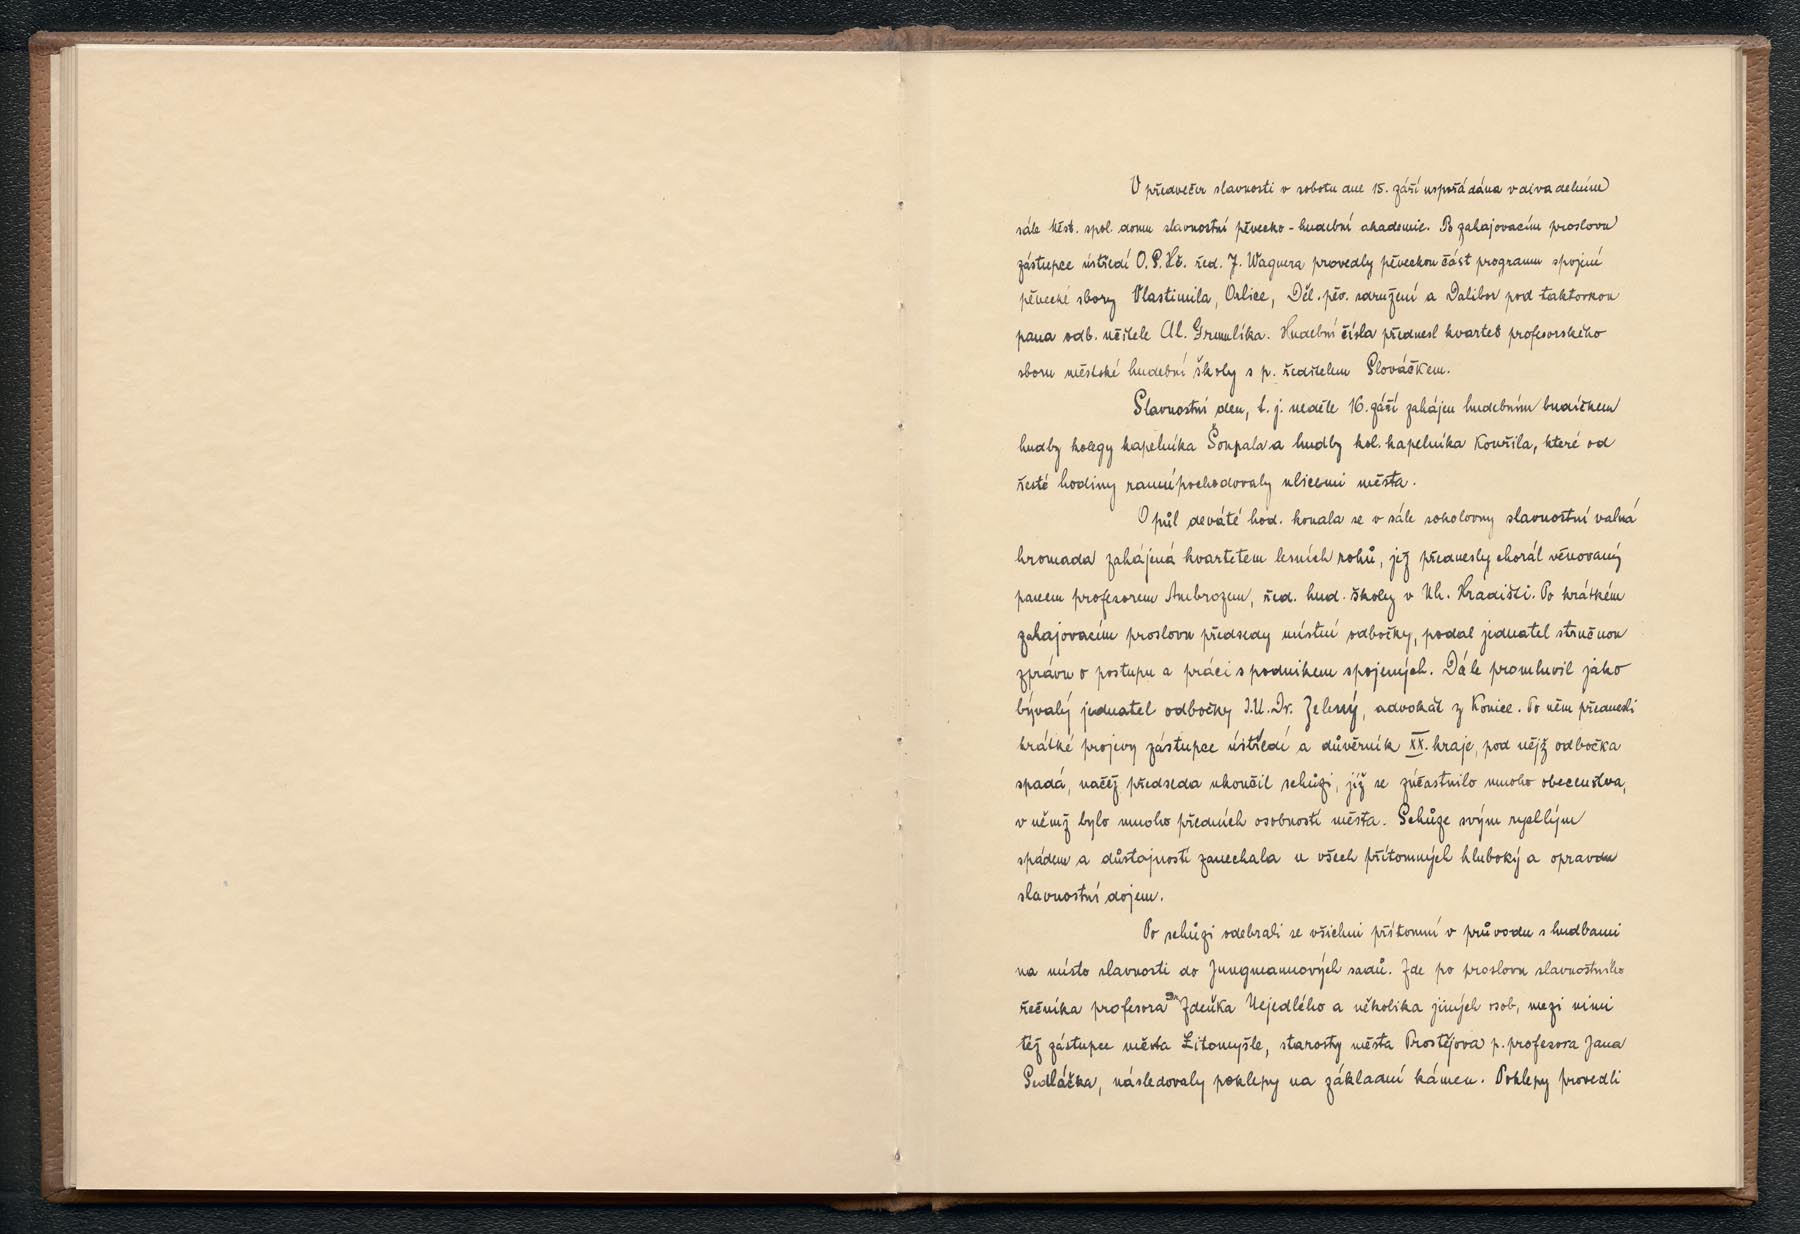 V předvečer slavnosti v sobotu dne 15. září uspořádána v divadelním
sále Měst. spol. domu slavnostní pěvecko-hudební akademie. Po zahajovacím proslovu
zástupce ústředí O.P.Hč. řed. J. Wagnera provedly pěveckou část programu spojené
pěvecké sbory Vlastimila, Orlice, Děl. pěv. sdružení a Dalibor pod taktovkou
pana odb. učitele Al. Grmulíka. Hudební čísla přednesl kvartet profesorského
sboru městské hudební školy s p. ředitelem Plováčkem.
Slavnostní den, t. j. neděle 16. září zahájen hudebním budíčkem
hudby kolegy kapelníka Šoupala a hudby kol. kapelníka Kouřila, které od
šesté hodiny ranní pochodovaly ulicemi města.
O půl deváté hod. konala se v sále sokolovny slavnostní valná
hromada zahájená kvartetem lesních rohů, jež přednesly chorál věnovaný
panem profesorem Ambrozem, řed. hud. školy v Uh. Hradišti. Po krátkém
zahajovacím proslovu předsedy místní odbočky, podal jednatel stručnou
zprávu o postupu a práci s podnikem spojených. Dále promluvil jako
bývalý jednatel odbočky J.U.Dr. Zelený, advokát z Konice. Po něm přednesli
krátké projevy zástupce ústředí a důvěrník XX. kraje, pod nějž odbočka
spadá, načež předseda ukončil schůzi, jíž se zúčastnilo mnoho obecenstva,
v němž bylo mnoho předních osobností města. Schůze svým rychlým
spádem a důstojností zanechala u všech přítomných hluboký a opravdu
slavnostní dojem.
Po schůzi odebrali se všichni přítomní v průvodu s hudbami
na místo slavnosti do Jungmannových sadů. Zde po proslovu slavnostního
řečníka profesora Dr. Zdeňka Nejedlého a několika jiných osob, mezi nimi
též zástupce města Litomyšle, starosty města Prostějova p. profesora Jana
Sedláčka, následovaly poklepy na základní kámen. Poklepy provedli